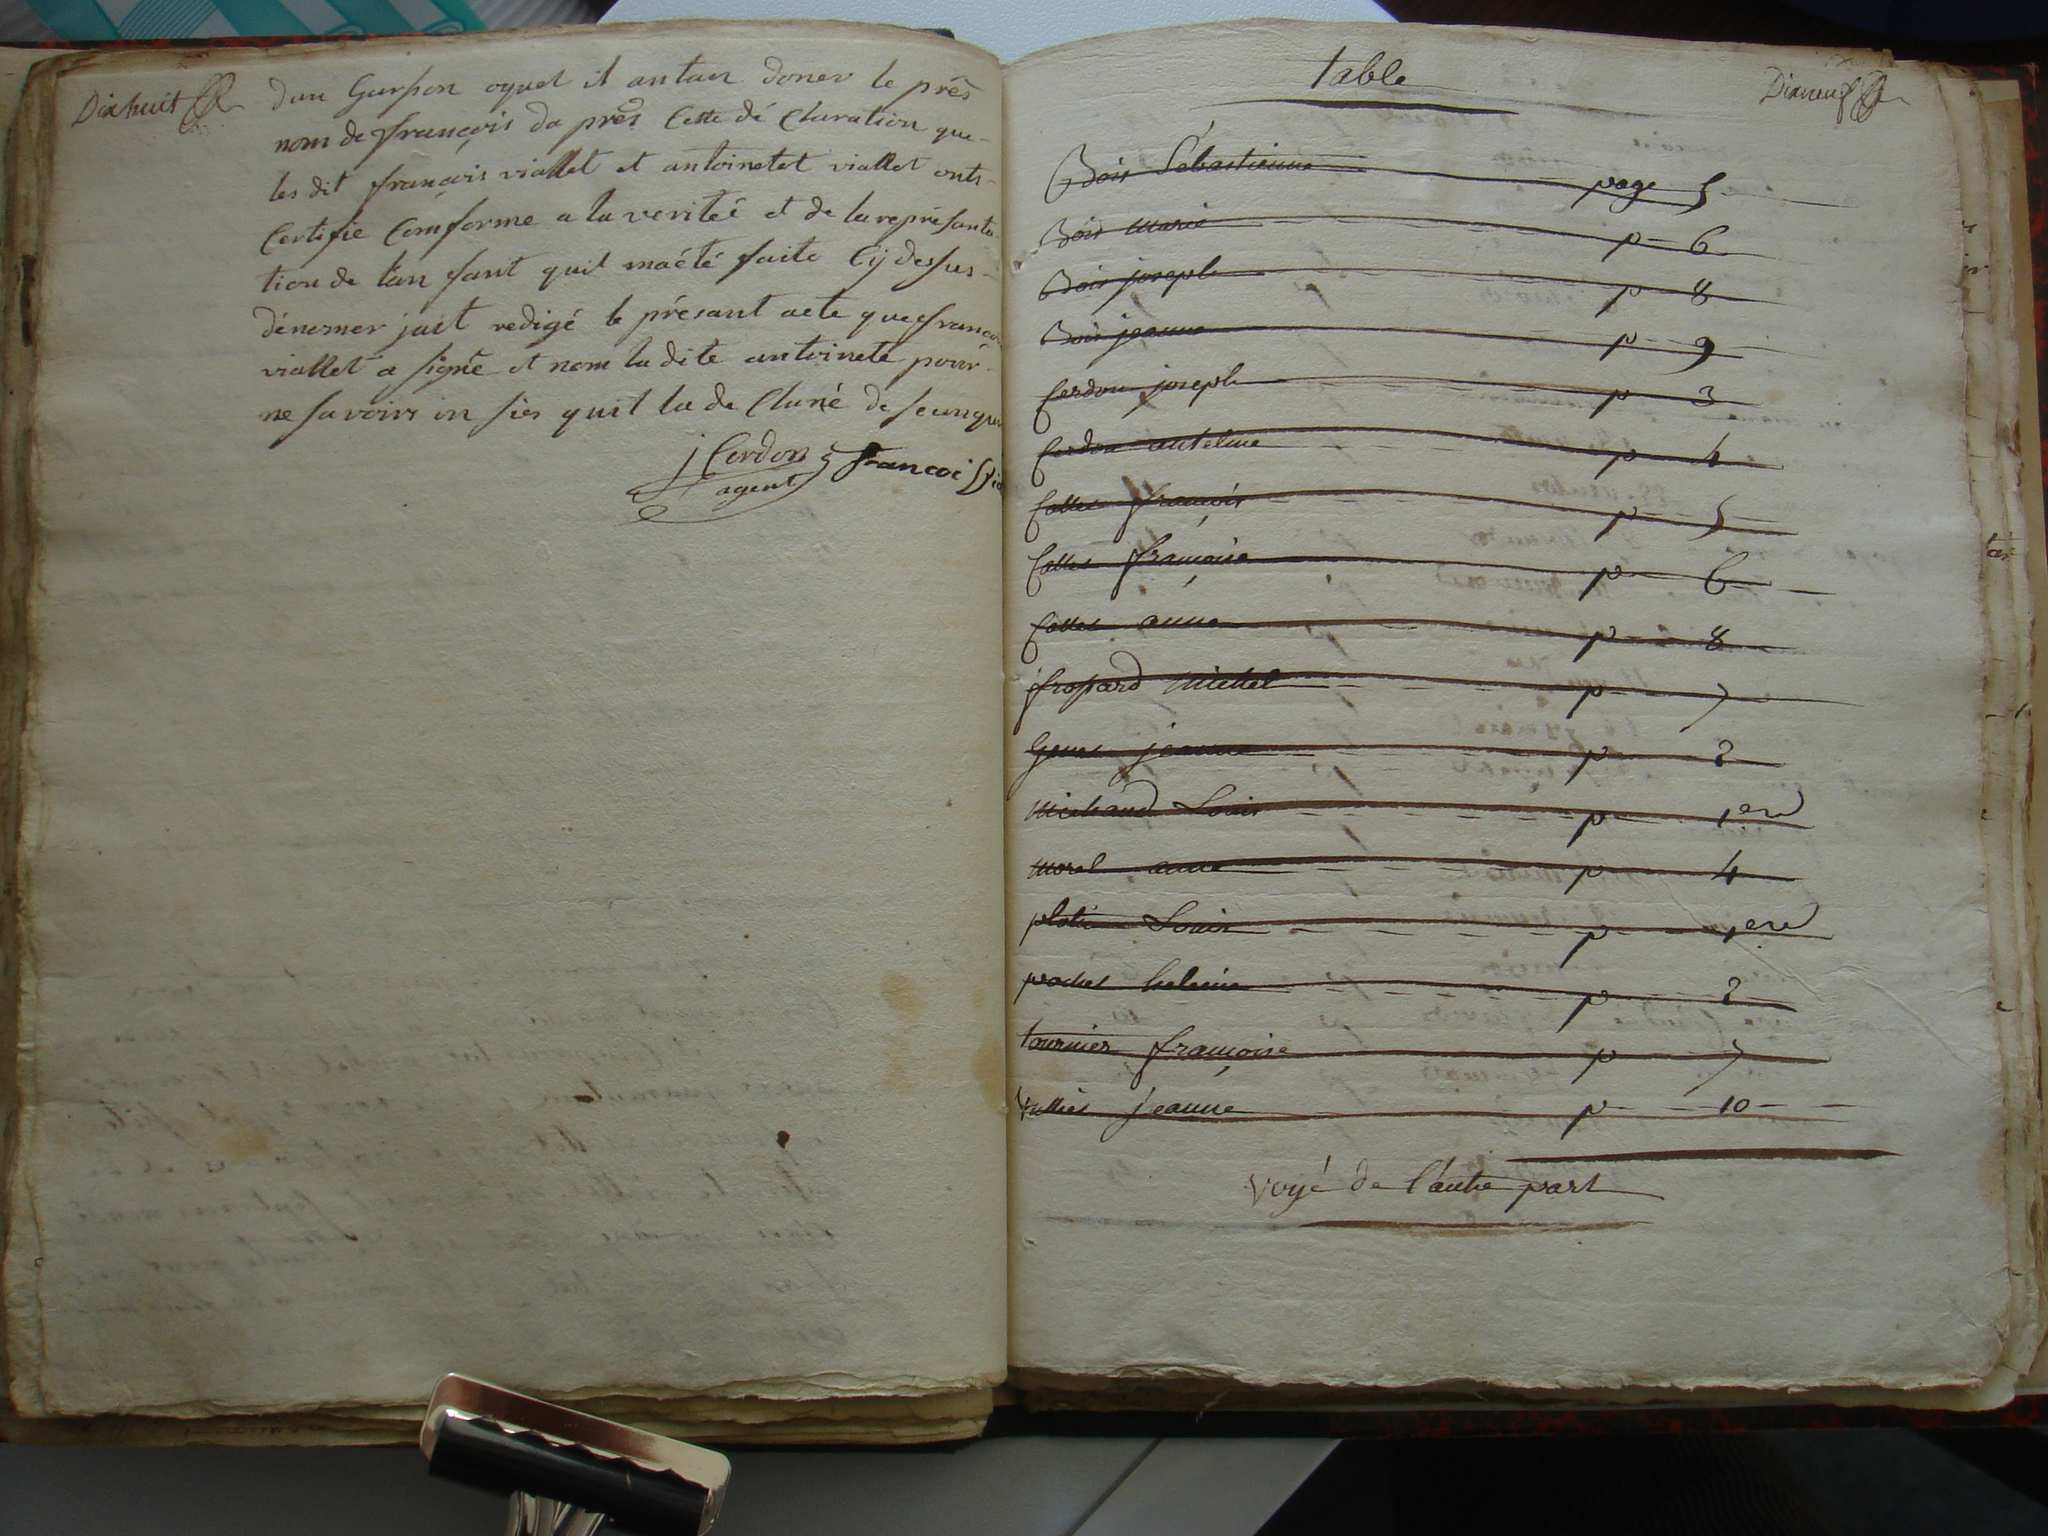 Dixhuit
dun Garson oquel il antan doner le prés
nom de françois da prês Cette dé Claration que
les dit françois viallet et antoinetet viallet onts
Certifie Comforme a la veriteé et de la reprèsanta
tion de lan fant quil maété faite Cij desus
dénomer jait redigé le présant acte que francois
viallet a signé et nom la dite antoinete pour
ne savoirs in sies quil la de Claré de
j Cordon agent françoi
table
Dixneuf
Bois Sébastienne page 5
Bois marie p 6
Bois joseph p 8
Bois jeanne p 9
Cerdon joseph p 3
Cerdon antelme p 4
Collet françois p 5
Collet françoise p 6
Collet anne p 8
fropard michel p 7
jeanne p 2
michaud Louis p 1ere
morel anne p 4
Louis p 1ere
helene p 2
tournier françoise p 7
jeanne p 10
voyé de l'autre part